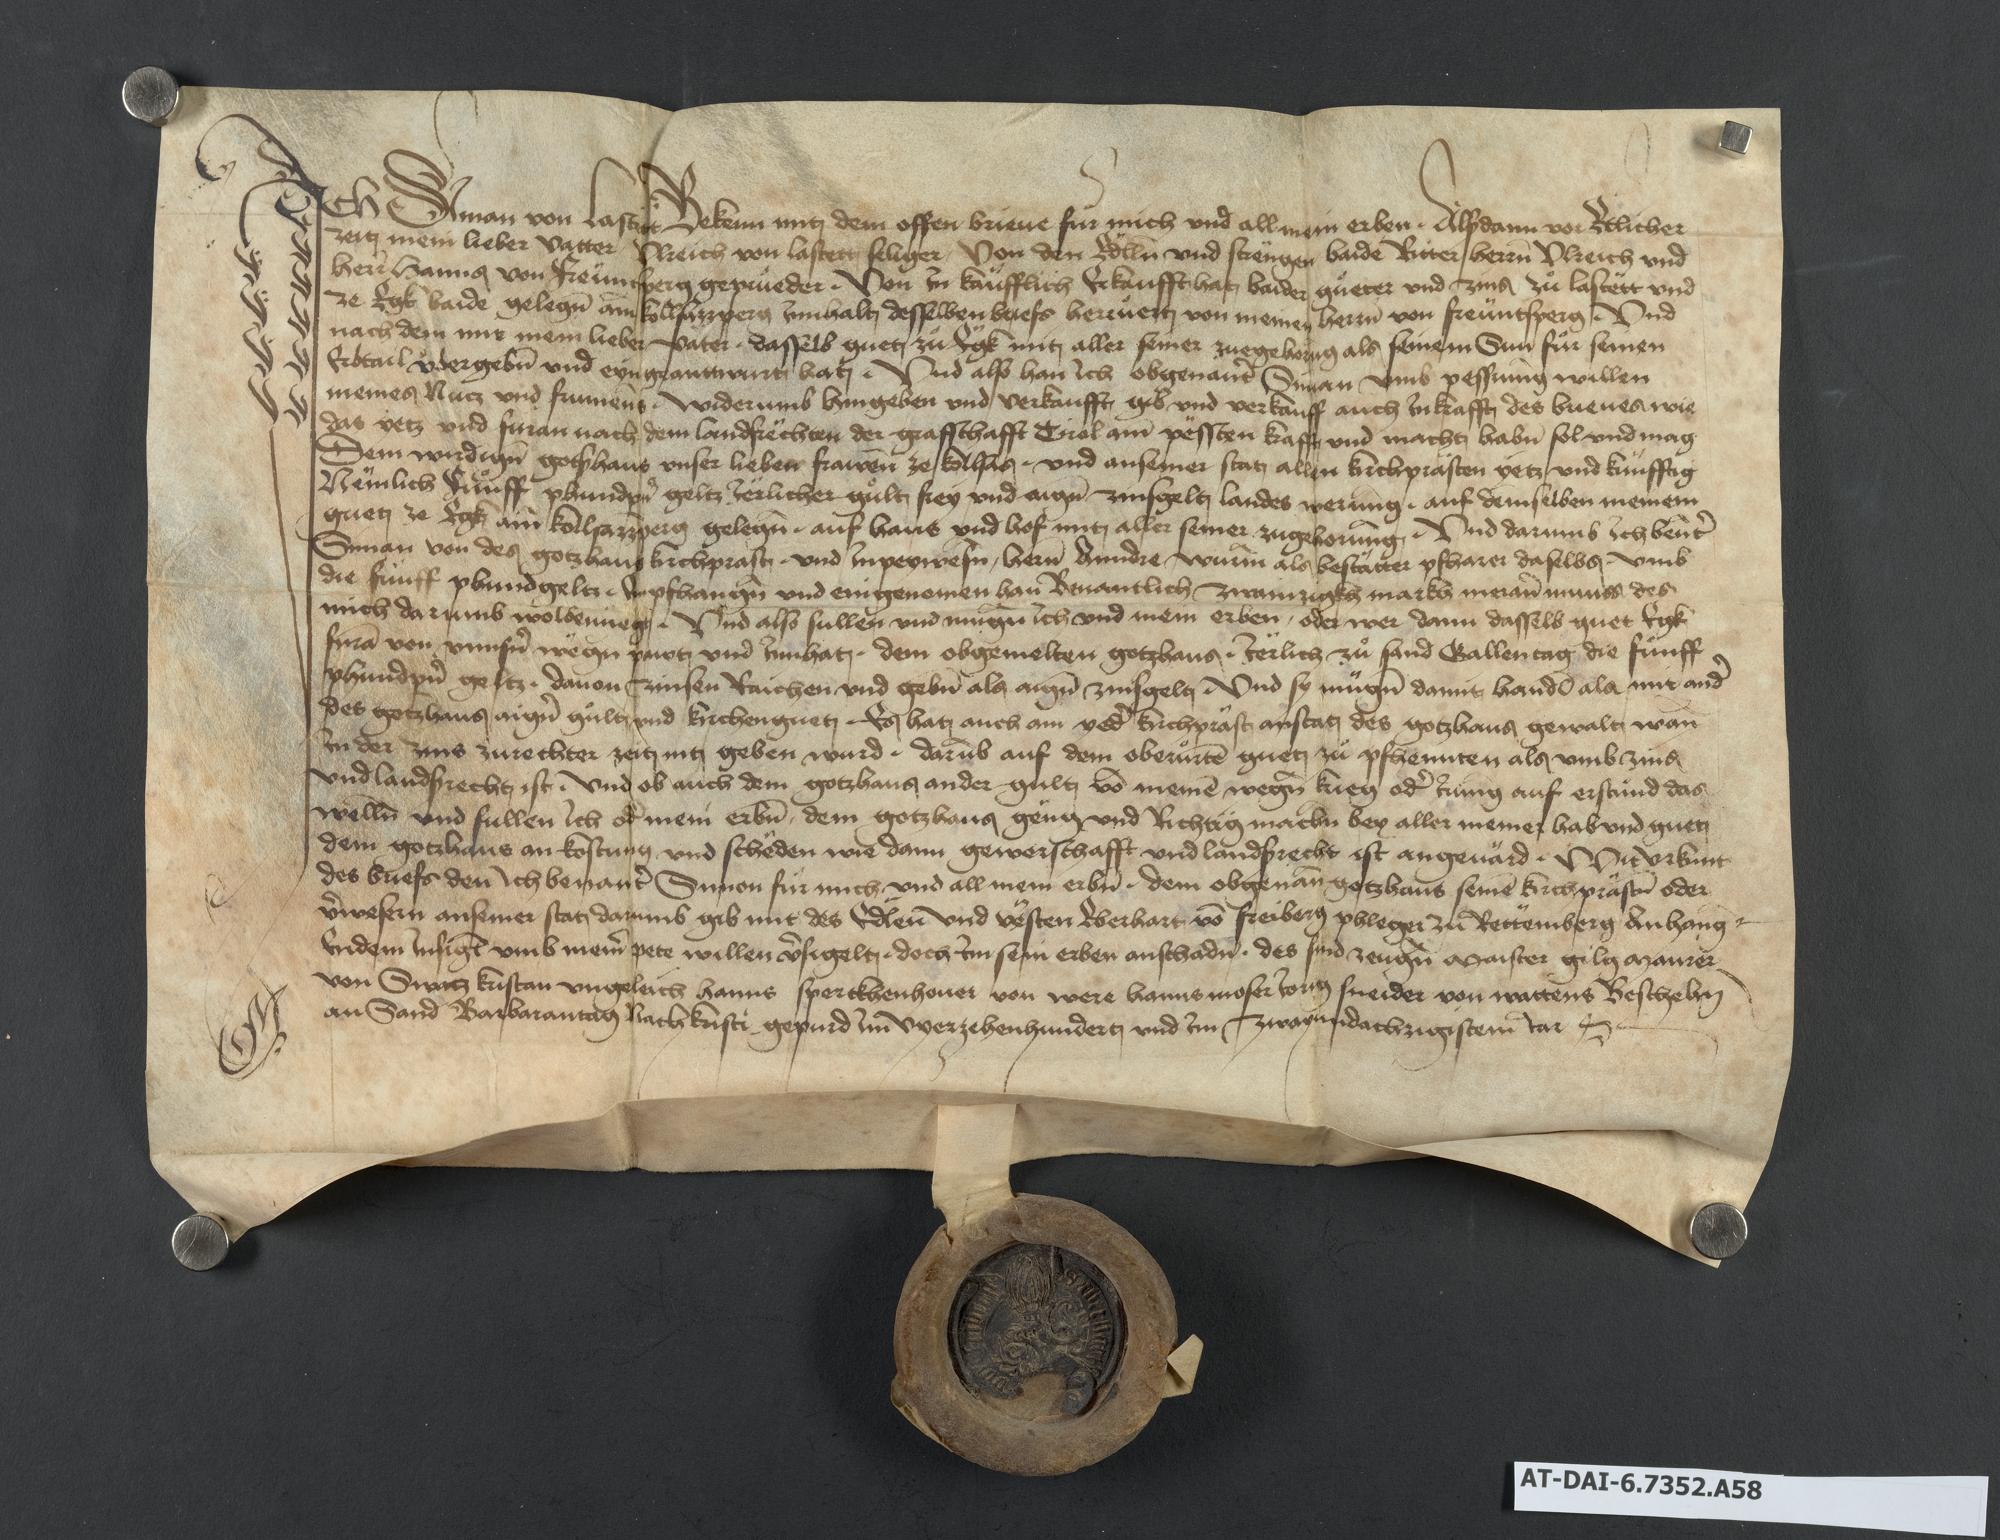 Ich Siman von lastett Bekenn mit dem offen brieue für mich vnd all mein erben · Alsdann vor Etlicher
zeit mein lieber vatter Vlreich von lastett seliger Von den Edlln̄ vnd strengen baide Ritter herrn̄ Vlreich vnd
herr Hanns von freuntsperg geprüeder · Von In käufflich Erkaufft hat baider güeter vnd zins zů lastett vnd
ze Egk baide gelegn̄ am kolsazzperg Innhalt desselben briefs herruert von meinen herrn̄ von freüntsperg · Vnd
nach dem mir mein lieber vater · dasselb guet zů Egk mit aller seiner zuegehörug als seinem Sun für seinen
Erbtail vbergebn̄ vnd eyngeanttwurt hat · Vnd also han Ich obgenant̄ Siman vmb pessrung willen
meines Nutz vnd frumens · widerumb hingeben vnd verkaufft gib vnd verkauff auch In krafft des brieues wie
das yetz vnd furan nach dem landsrechten der graffschafft Tirol am pessten krafft vnd macht habn̄ sol vnd mag
Dem wirdign̄ gotzhaus vnser lieben frawen ze kolsas · vnd an seiner stat allen kirchprästen yetz vnd künfftig
Nemlich Fünff phundpn̄ geltz Jerlicher gült frey vnd aign̄ zinsgelt landes werung · auf demselben meinem
guet ze Egk am kolsazzperg gelegn̄ · auf haus vnd hof mit aller seiner zugehorung · Vnd darumb Ich bent̄
Siman von des gotzhaus kirchprast · vnd Inpeywesn̄ / herrn̄ Anndre wurm als bestätter pfharer daselbs · vmb
die fünff phundgeltz · Enpfhangn̄ vnd eingenomen han Benantlich zwainzigkh markh meran̄ munss des
mich darumb wolbenuegt · Vnd also sullen vnd mugn̄ Ich vnd mein erben / oder wer dann dasselb guet Egk
furā von vnnsn̄ wegn̄ pawt vnd Innhat · dem obgemelten gotzhaus · Jerlich zů sand Gallentag die fünff
phundpn̄ geltz · dauon zinsen Raichen vnd gebn̄ als aign̄ zinsgelt · Vnd sy mügn̄ damit handl̄ als mit and̄
des gotzhaus aign̄ gült vnd kirchenguet · Es hat auch ain yed̄ kirchpräst anstat des gotzhaus gewalt wan
In der zins zurechter zeit nit geben wurd · darūb auf dem oberürtē guet zů pfhennten als vmb zins
vnd landsrecht ist · Vnd ob auch dem gotzhaus ander gült vō meinē wegn̄ krieg od̄ Irung auf erstünd das
welln̄ vnd sullen Ich od̄ mein erbn̄ · dem gotzhaus geng vnd Richtig machn̄ bey aller meiner hab vnd guet
dem gotzhaus an kostung vnd scheden wie dann gewerschafft vnd landsrecht ist angeuärd · Mit vrkunt
des briefs den Ich benant̄ Simon für mich vnd all mein erbn̄ · dem obgenan̄ gotzhaus seinē kirchprästn̄ oder
v̄wesern anseiner stat darumb gib mit des Edlen̄ vnd vesten Eberhart vō freiberg phleger zů Rettemberg Anhang
Enndem Insigl vmb mein̄ pete willen v̄sigelt · doch Im sein erben anschadn̄ · des sind zeugn̄ maister gilg maurer
von Swatz kristan vngeleich hanns sperkhenhouer von were hanns moser Jorig sneider von wattens Beschehn̄
an Sand Barbarantag Nach kristi gepurd Im vierzehenhundert vnd Im zwayundachzigistem Iar
AT-DAI-6.7352.A58